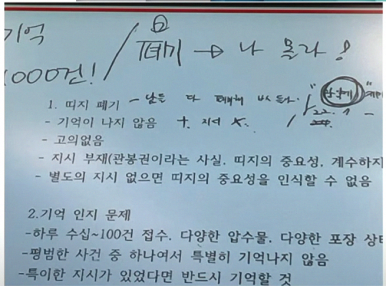 기억
1000건!
폐기 → 나 몰라!
1. 띠지 폐기 - 남은 다
- 기억이 나지 않음 + 지시 X.
- 고의없음
- 지시 부재(관봉권이라는 사실, 띠지의 중요성, 계수하지
- 별도의 지시 없으면 띠지의 중요성을 인식할 수 없음
2.기억 인지 문제
-하루 수십~100건 접수. 다양한 압수물. 다양한 포장 상태
-평범한 사건 중 하나여서 특별히 기억나지 않음
-특이한 지시가 있었다면 반드시 기억할 것